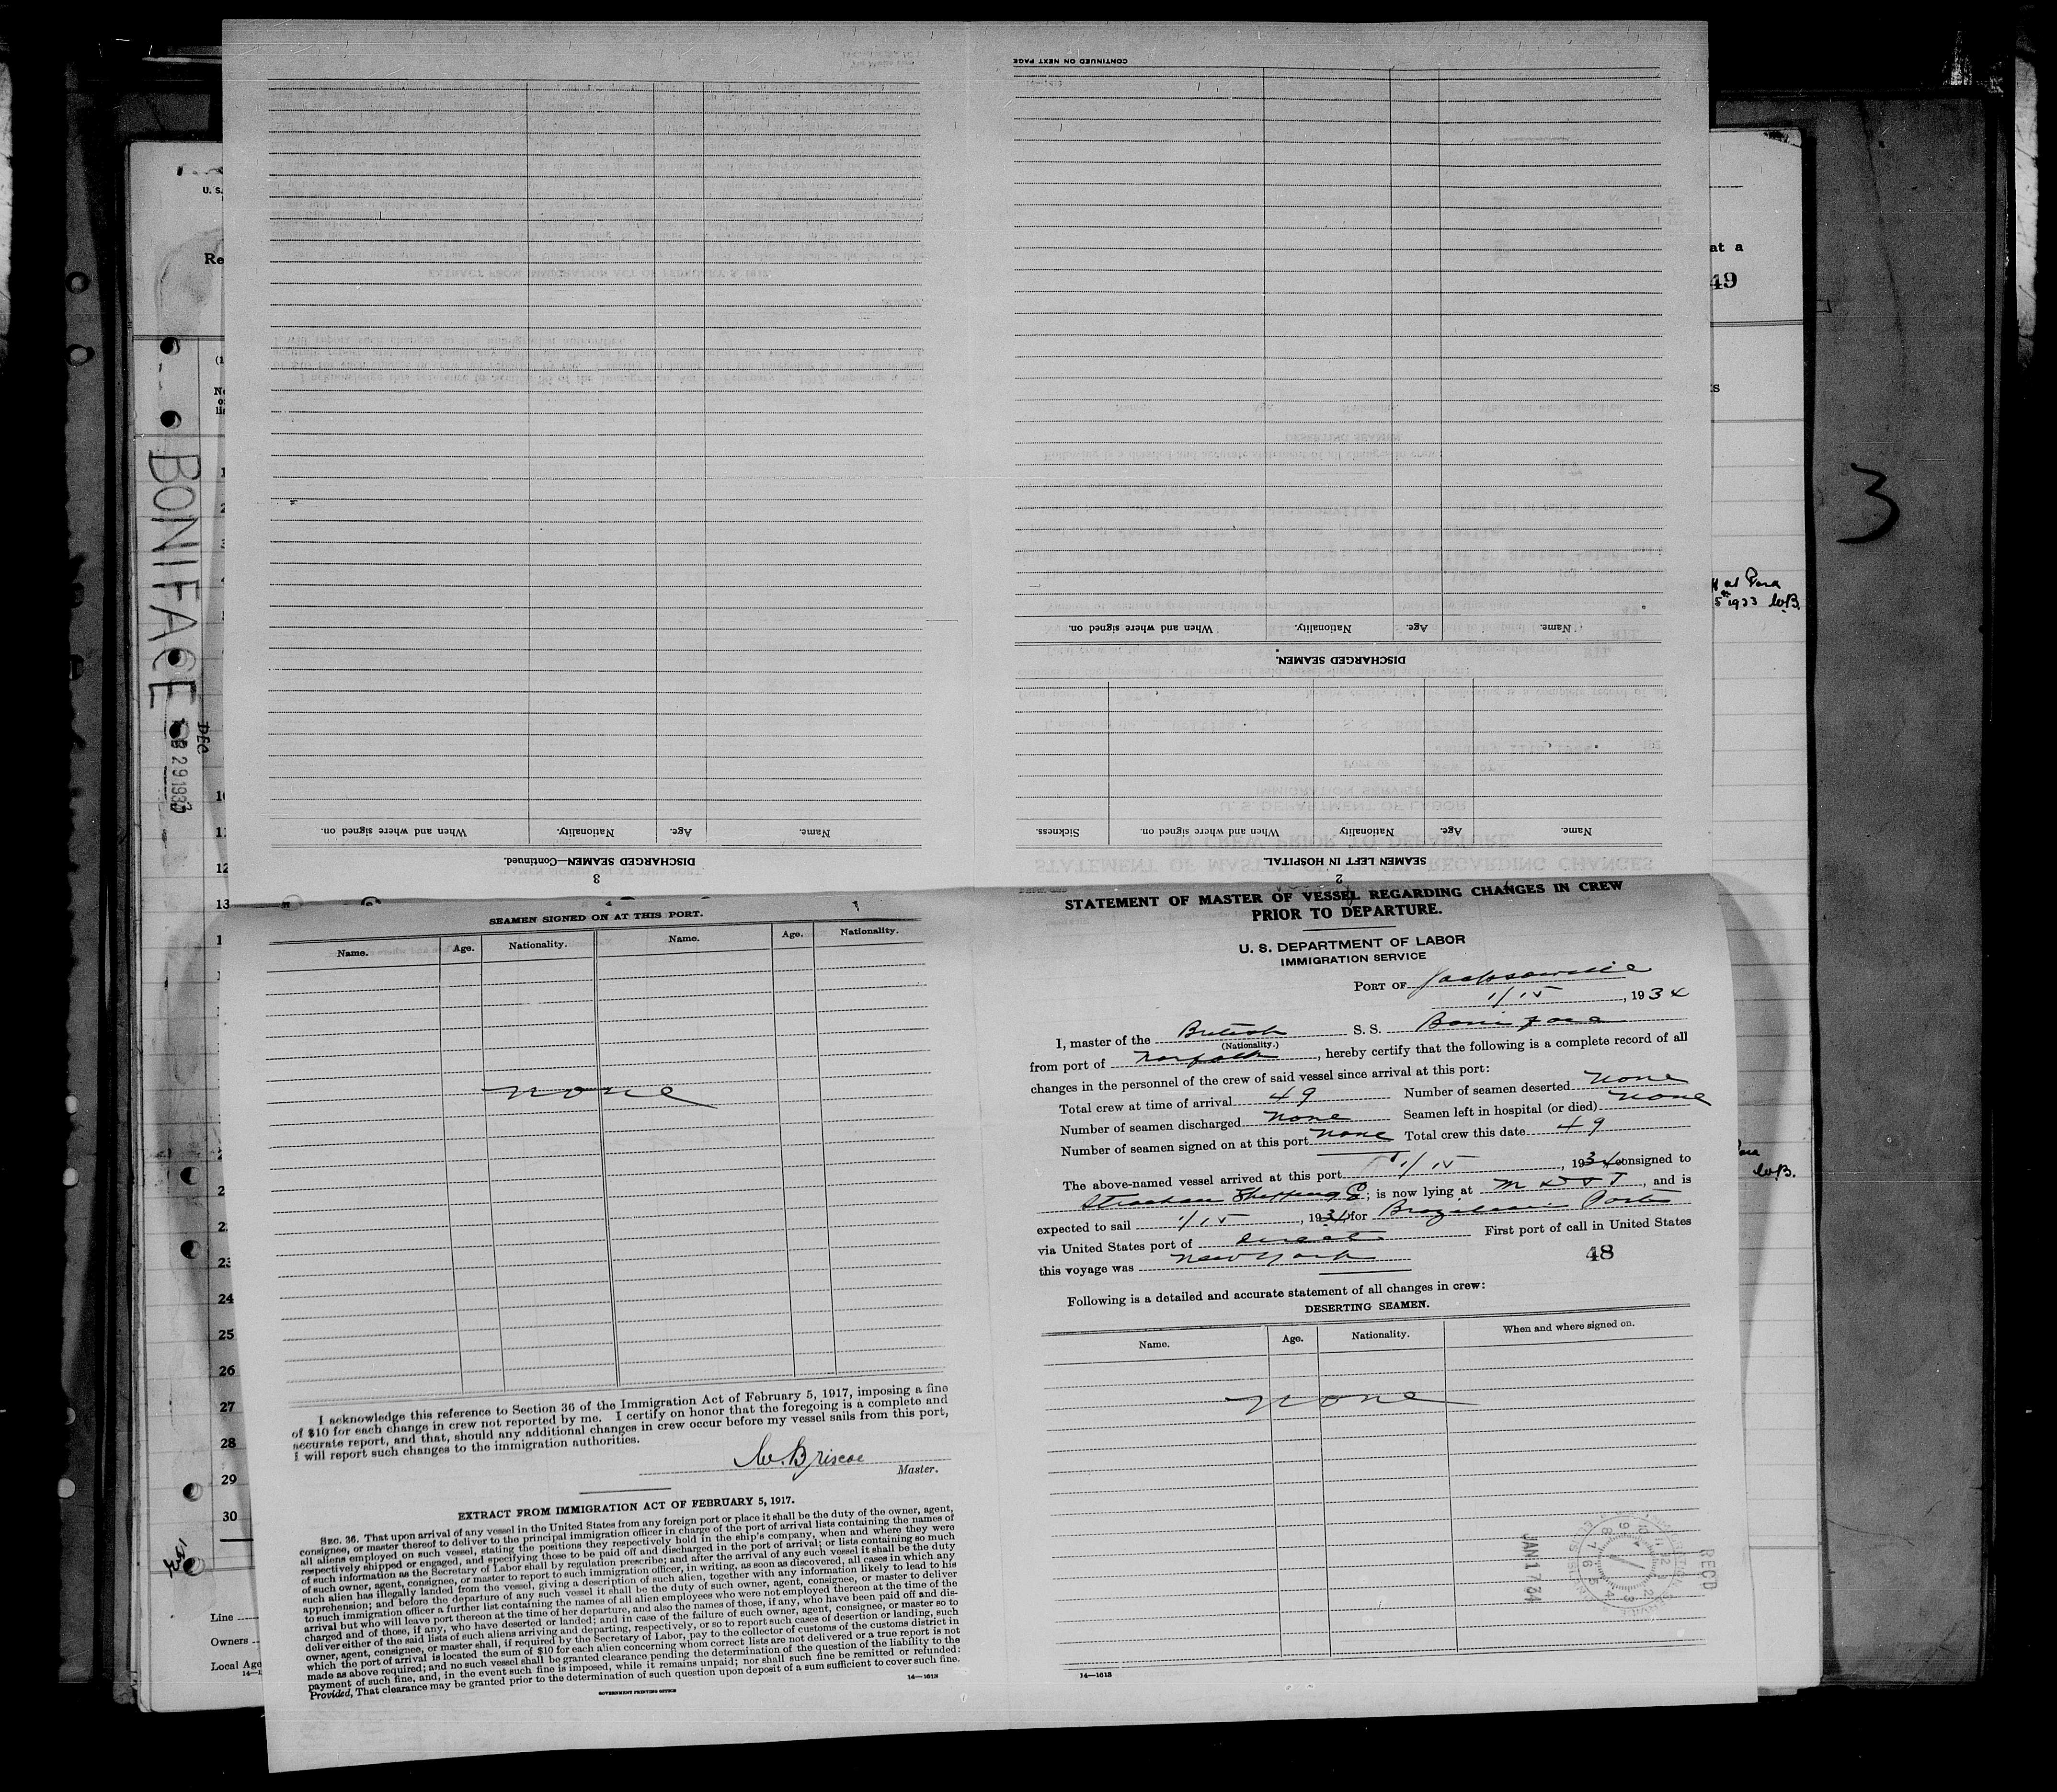 CONTINUED ON NEXT PAGE
Name. Age. Nationality. When and where signed on.
DISCHARGED SEAMEN.
Name. Age. Nationality When and where signed on. Sickness.
SEAMEN LEFT IN HOSPITAL.
2
Name. Age. Nationality. When and where signed on.
DISCHARGED SEAMEN—Continued.
3
U. S.
Re
at a
49
BONIFACE
DEC
29 193
3
SEAMEN SIGNED ON AT THIS PORT.
Name. Age. Nationality. Name. Age. Nationality.
none
I acknowledge this reference to Section 36 of the Immigration Act of February 5, 1917, imposing a fine
of $10 for each change in crew not reported by me. I certify on honor that the foregoing is a complete and
accurate report, and that, should any additional changes in crew occur before my vessel sails from this port,
I will report such changes to the immigration authorities.
W. Briscoe
Master.
EXTRACT FROM IMMIGRATION ACT OF FEBRUARY 5, 1917.
SEC. 36. That upon arrival of any vessel in the United States from any foreign port or place it shall be the duty of the owner, agent,
consignee, or master thereof to deliver to the principal immigration officer in charge of the port of arrival lists containing the names of
all aliens employed on such vessel, stating the positions they respectively hold in the ship's company, when and where they were
respectively shipped or engaged, and specifying those to be paid off and discharged in the port of arrival; or lists containing so much
of such information as the Secretary of Labor shall by regulation prescribe; and after the arrival of any such vessel it shall be the duty
of such owner, agent, consignee, or master to report to such immigration officer, in writing, as soon as discovered, all cases in which any
such alien has illegally landed from the vessel, giving a description of such alien, together with any information likely to lead to his
apprehension; and before the departure of any such vessel it shall be the duty of such owner, agent, consignee, or master to deliver
to such immigration officer a further list containing the names of all alien employees who were not employed thereon at the time of the
arrival but who will leave port thereon at the time of her departure, and also the names of those, if any, who have been paid off and dis-
charged and of those, if any, who have deserted or landed; and in case of the failure of such owner, agent, consignee, or master so to
deliver either of the said lists of such aliens arriving and departing, respectively, or so to report such cases of desertion or landing, such
owner, agent, consignee, or master shall, if required by the Secretary of Labor, pay to the collector of customs of the customs district in
which the port of arrival is located the sum of $10 for each alien concerning whom correct lists are not delivered or a true report is not
made as above required; and no such vessel shall be granted clearance pending the determination of the question of the liability to the
payment of such fine, and, in the event such fine is imposed, while it remains unpaid; nor shall such fine be remitted or refunded:
Provided, That clearance may be granted prior to the determination of such question upon deposit of a sum sufficient to cover such fine.
GOVERNMENT PRINTING OFFICE
14—1613
STATEMENT OF MASTER OF VESSEL REGARDING CHANGES IN CREW
PRIOR TO DEPARTURE.
U. S. DEPARTMENT OF LABOR
IMMIGRATION SERVICE
PORT OF Jacksonville
1/15, 1934
I, master of the British S. S. Boniface
(Nationality.)
from port of Norfolk, hereby certify that the following is a complete record of all
changes in the personnel of the crew of said vessel since arrival at this port:
Total crew at time of arrival 49 Number of seamen deserted none
Number of seamen discharged none Seamen left in hospital (or died) none
Number of seamen signed on at this port none Total crew this date 49
The above-named vessel arrived at this port 1/15, 1934 consigned to
Strachan Shipping Co; is now lying at M & T, and is
expected to sail 1/15, 1934 for Brazilian Ports
via United States port of direct First port of call in United States
this voyage was New York
48
Following is a detailed and accurate statement of all changes in crew:
DESERTING SEAMEN.
Name. Age. Nationality. When and where signed on.
none
JAN 17 34
REC'D
14—1613
at Para
5 1933 W.B.
W.B.
12
13
24
25
26
27
28
29
30
Line
Owners
Local Age